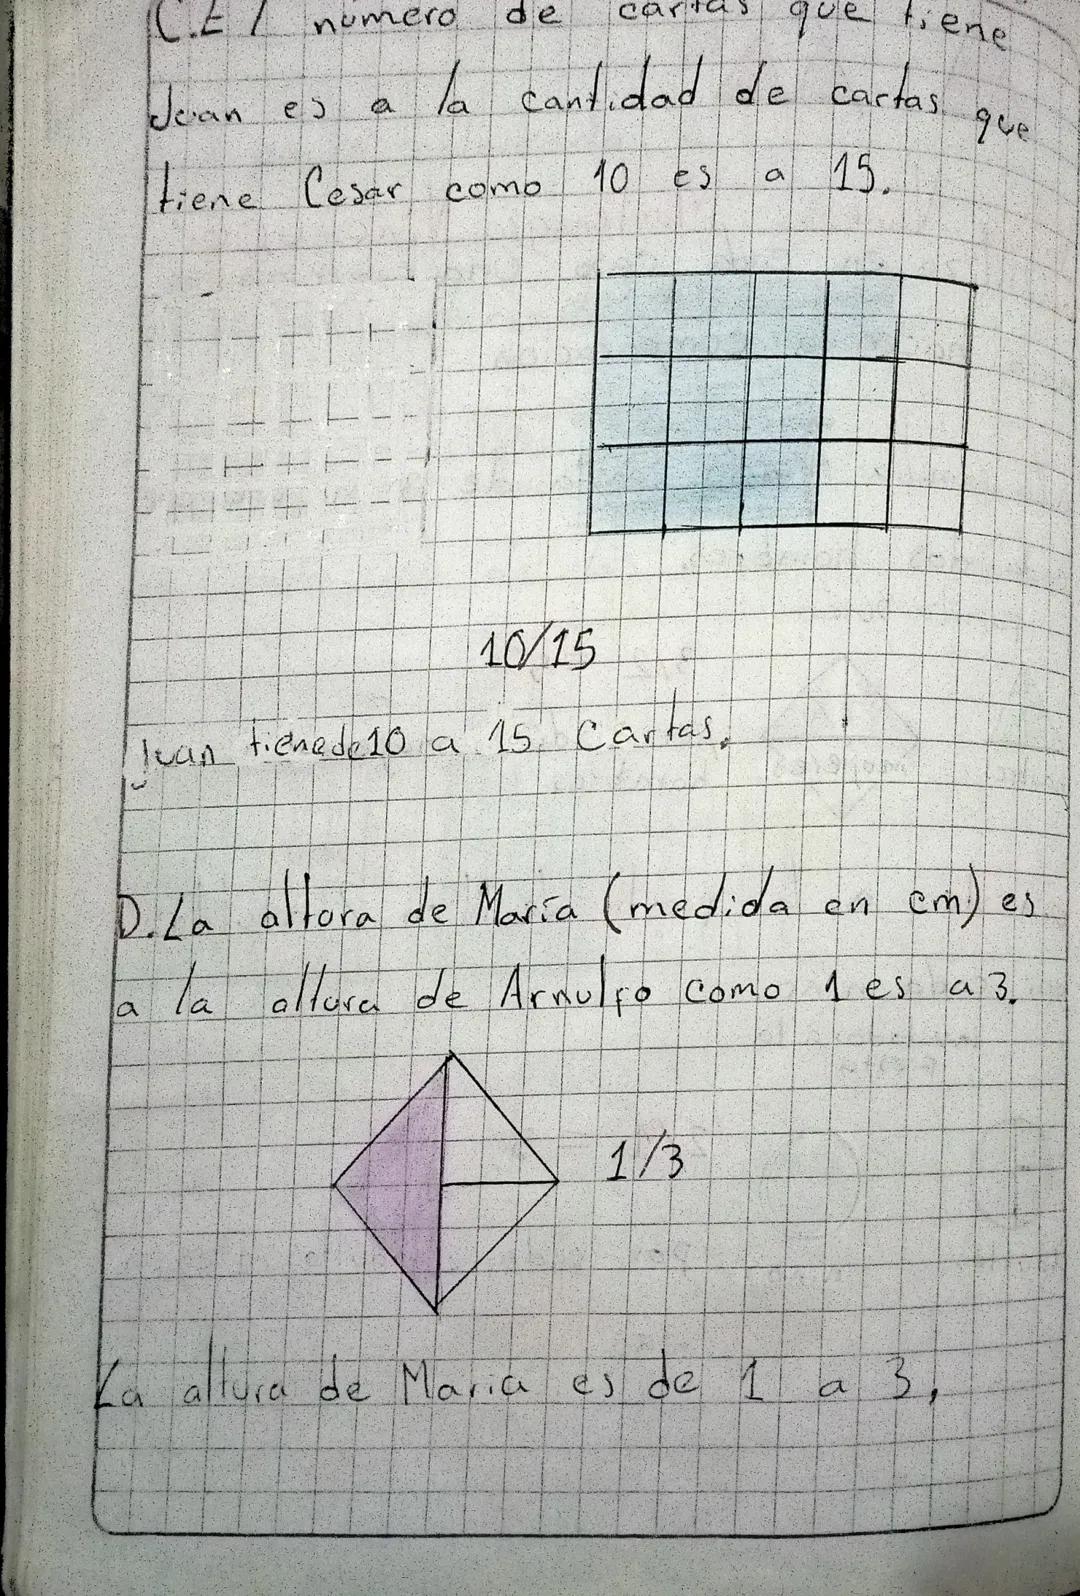 C. El número de cartas que tiene
Juan es a la cantidad de cartas que
tiene Cesar como 10 es a 15.
10/15
Juan tiene de 10 a 15 Cartas.
D. La altora de María (medida en cm) es
a la altura de Arnulfo como 1 es a 3.
1/3
La altura de Maria es de 1 a 3,